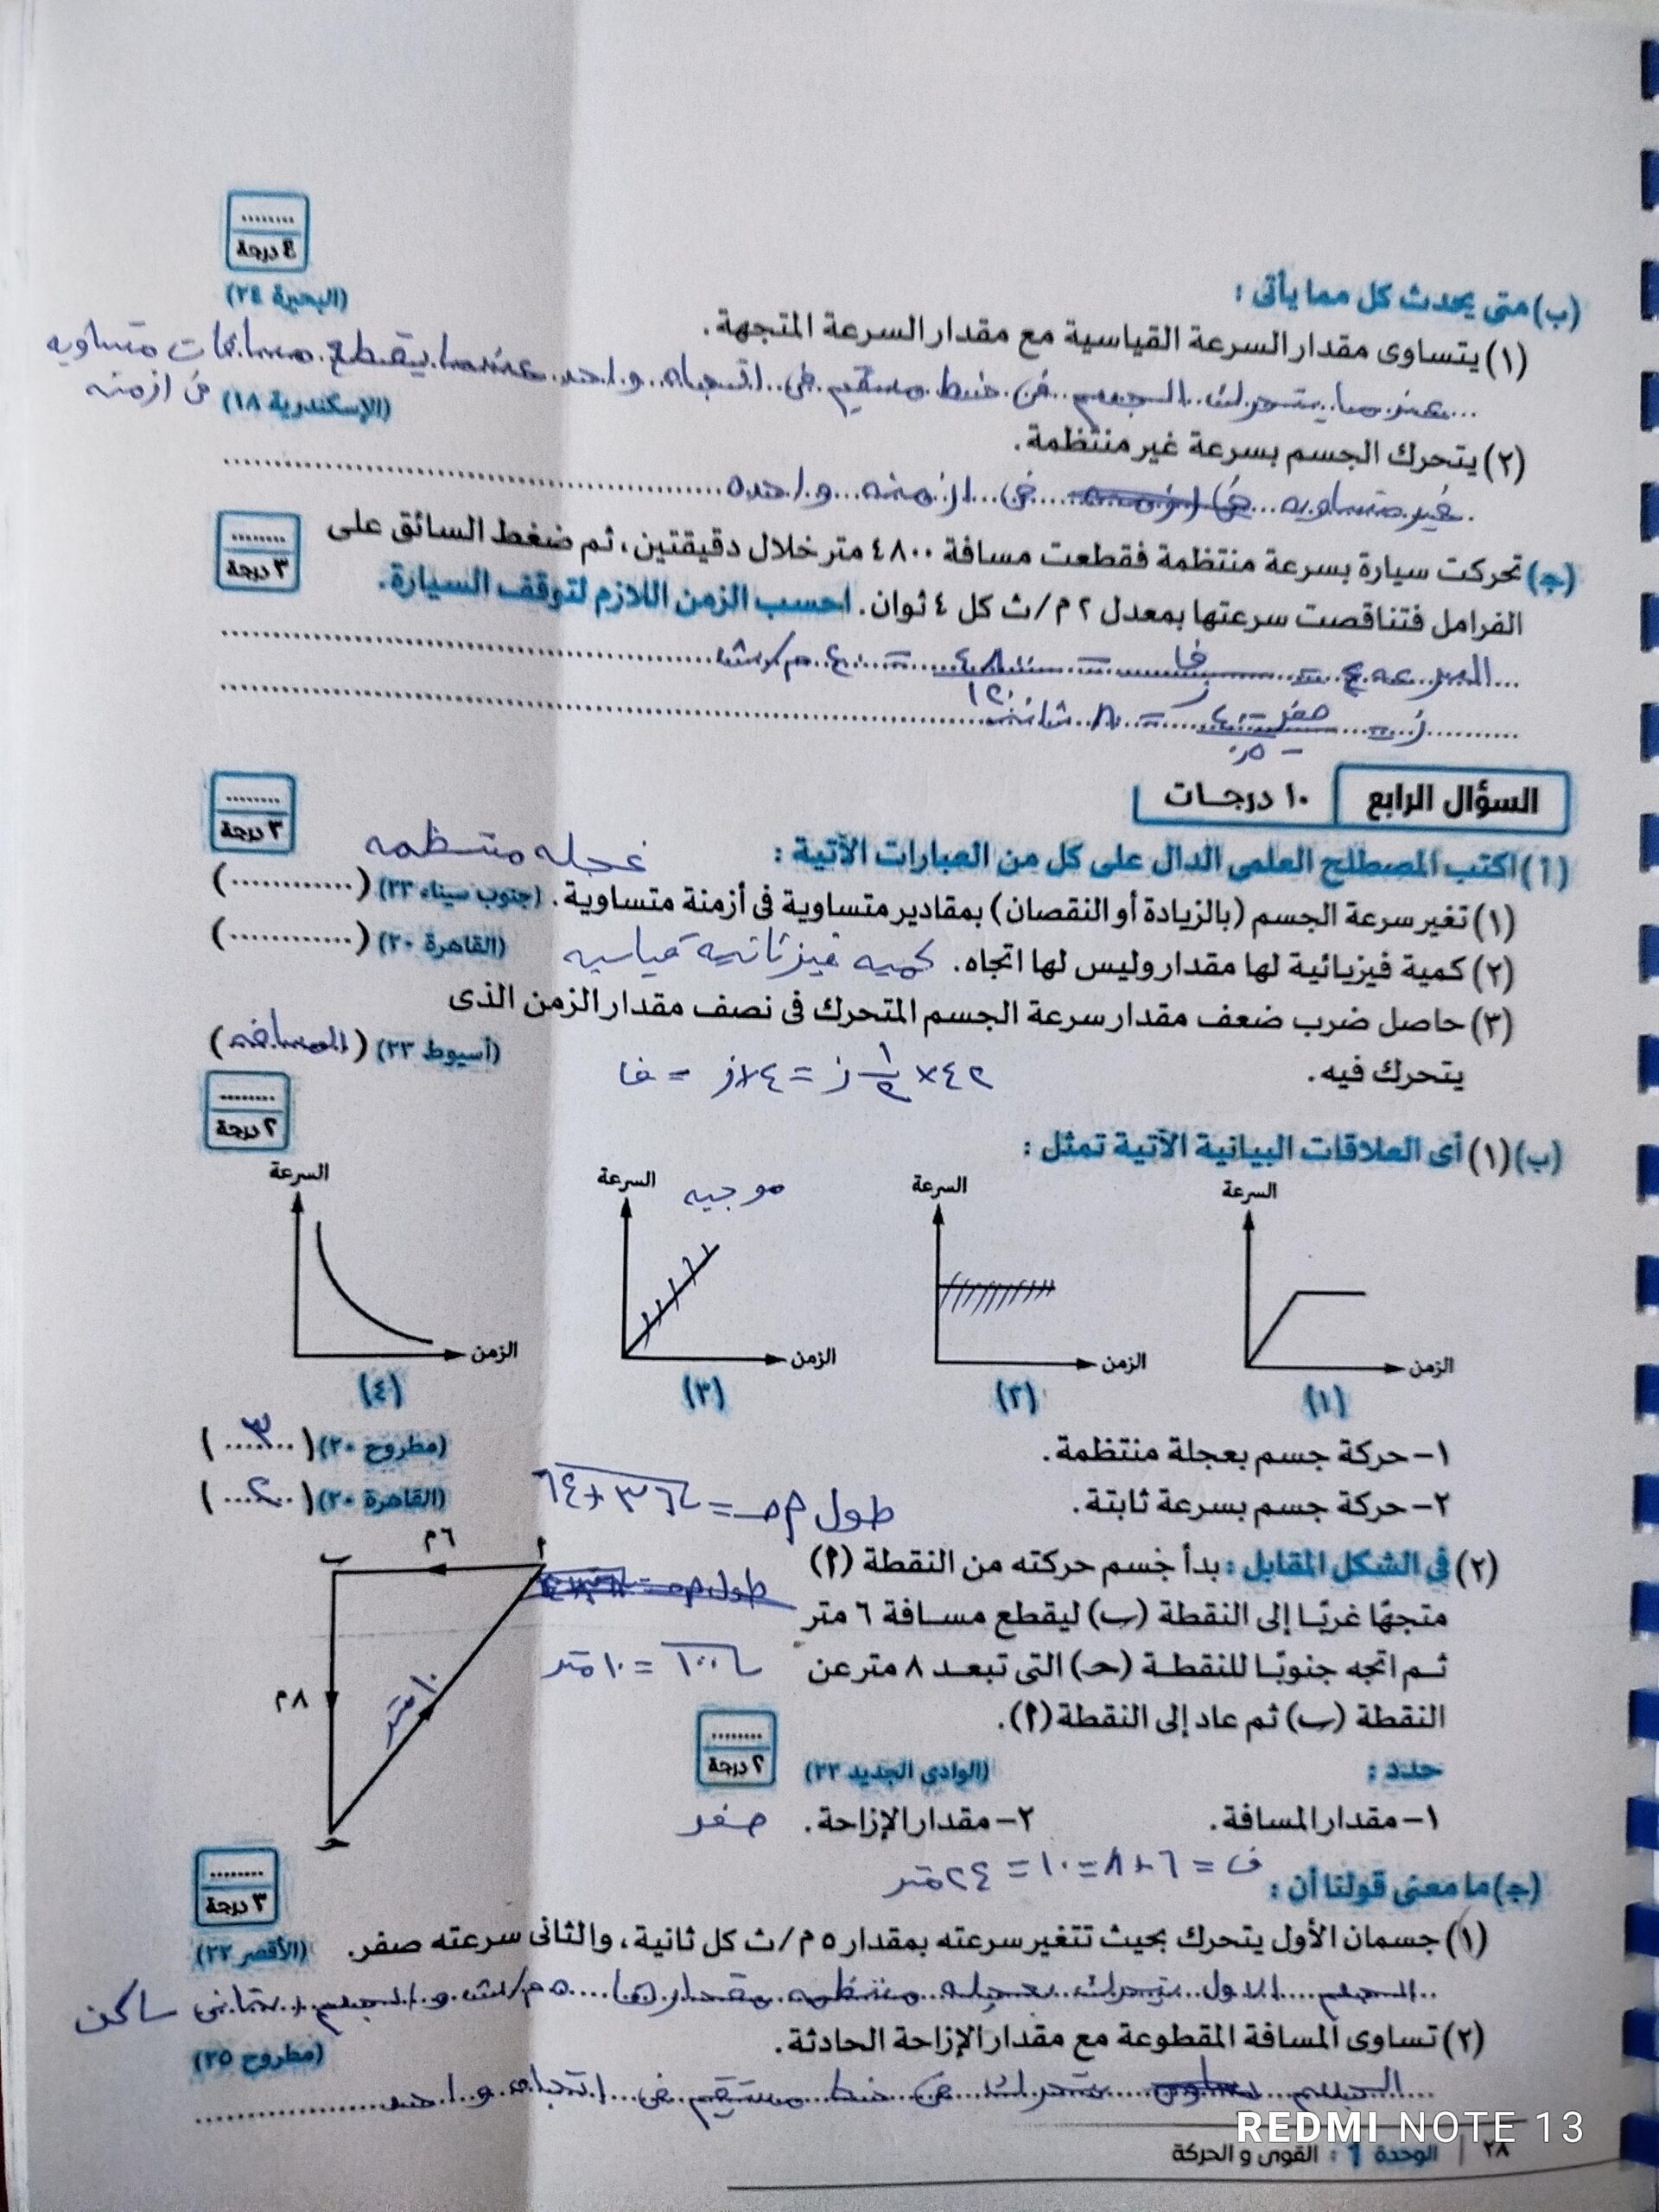 ........
٤ درجة
(ب) متى يحدث كل مما يأتى :
(١) يتساوى مقدار السرعة القياسية مع مقدار السرعة المتجهة. (البحيرة ٢٤)
عندما يتحرك الجسم فى خط مستقيم فى اتجاه واحد عندما يقطع مسافات متساويه
فى ازمنه
(٢) يتحرك الجسم بسرعة غير منتظمة. (الإسكندرية ١٨)
غير متساويه فى ازمنه واحده
(ج) تحركت سيارة بسرعة منتظمة فقطعت مسافة ٤٨٠٠ متر خلال دقيقتين، ثم ضغط السائق على
........
٣ درجة
الفرامل فتناقصت سرعتها بمعدل ٢ م/ث كل ٤ ثوان. احسب الزمن اللازم لتوقف السيارة.
السرعه ع = ف/ز = ٤٨٠٠/١٢٠ = ٤٠ م/ث
ز = صفر - ٤٠ / - ٠٫٥ = ٨٠ ثانيه
السؤال الرابع ١٠ درجات
........
٣ درجة
(أ) اكتب المصطلح العلمى الدال على كل من العبارات الآتية :
عجله منتظمه
(١) تغير سرعة الجسم (بالزيادة أو النقصان) بمقادير متساوية فى أزمنة متساوية. (جنوب سيناء ٢٣) (............)
(٢) كمية فيزيائية لها مقدار وليس لها اتجاه. كميه فيزيائيه قياسيه (القاهرة ٢٠) (............)
(٣) حاصل ضرب ضعف مقدار سرعة الجسم المتحرك فى نصف مقدار الزمن الذى
يتحرك فيه. (أسيوط ٢٣) (المسافه)
٢ع × ١/٢ ز = ع×ز = ف
........
٢ درجة
(ب) (١) أى العلاقات البيانية الآتية تمثل :
السرعة
الزمن
(١)
السرعة
الزمن
(٢)
السرعة
موجبه
الزمن
(٣)
السرعة
الزمن
(٤)
١- حركة جسم بعجلة منتظمة. (مطروح ٢٠) (٣)
٢- حركة جسم بسرعة ثابتة. (القاهرة ٢٠) (٢)
طول أحـ = √٣٦+٦٤
(٢) فى الشكل المقابل : بدأ جسم حركته من النقطة (أ)
متجهًا غربًا إلى النقطة (ب) ليقطع مسافة ٦ متر
ثم اتجه جنوبًا للنقطة (حـ) التى تبعد ٨ متر عن
√١٠٠ = ١٠ متر
النقطة (ب) ثم عاد إلى النقطة (أ).
أ
٦م
ب
٨م
١٠ متر
حـ
........
٢ درجة
حدد : (الوادى الجديد ٢٣)
١- مقدار المسافة. ٢- مقدار الإزاحة. صفر
ف = ٦+٨=١٠ = ٢٤ متر
........
٣ درجة
(ج) ما معنى قولنا أن :
(١) جسمان الأول يتحرك بحيث تتغير سرعته بمقدار ٥ م/ث كل ثانية، والثانى سرعته صفر. (الأقصر ٢٣)
الجسم الاول يتحرك بعجله منتظمه مقدارها ٥ م/ث و الجسم الثانى ساكن
(٢) تساوى المسافة المقطوعة مع مقدار الإزاحة الحادثة. (مطروح ٢٥)
الجسم يتحرك فى خط مستقيم فى اتجاه واحد
REDMI NOTE 13
٢٨ | الوحدة 1 : القوى و الحركة